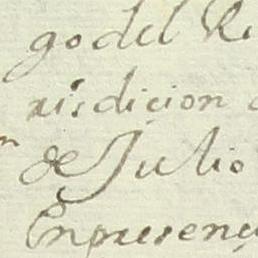 go del R
risdicion
de Julio
En presen